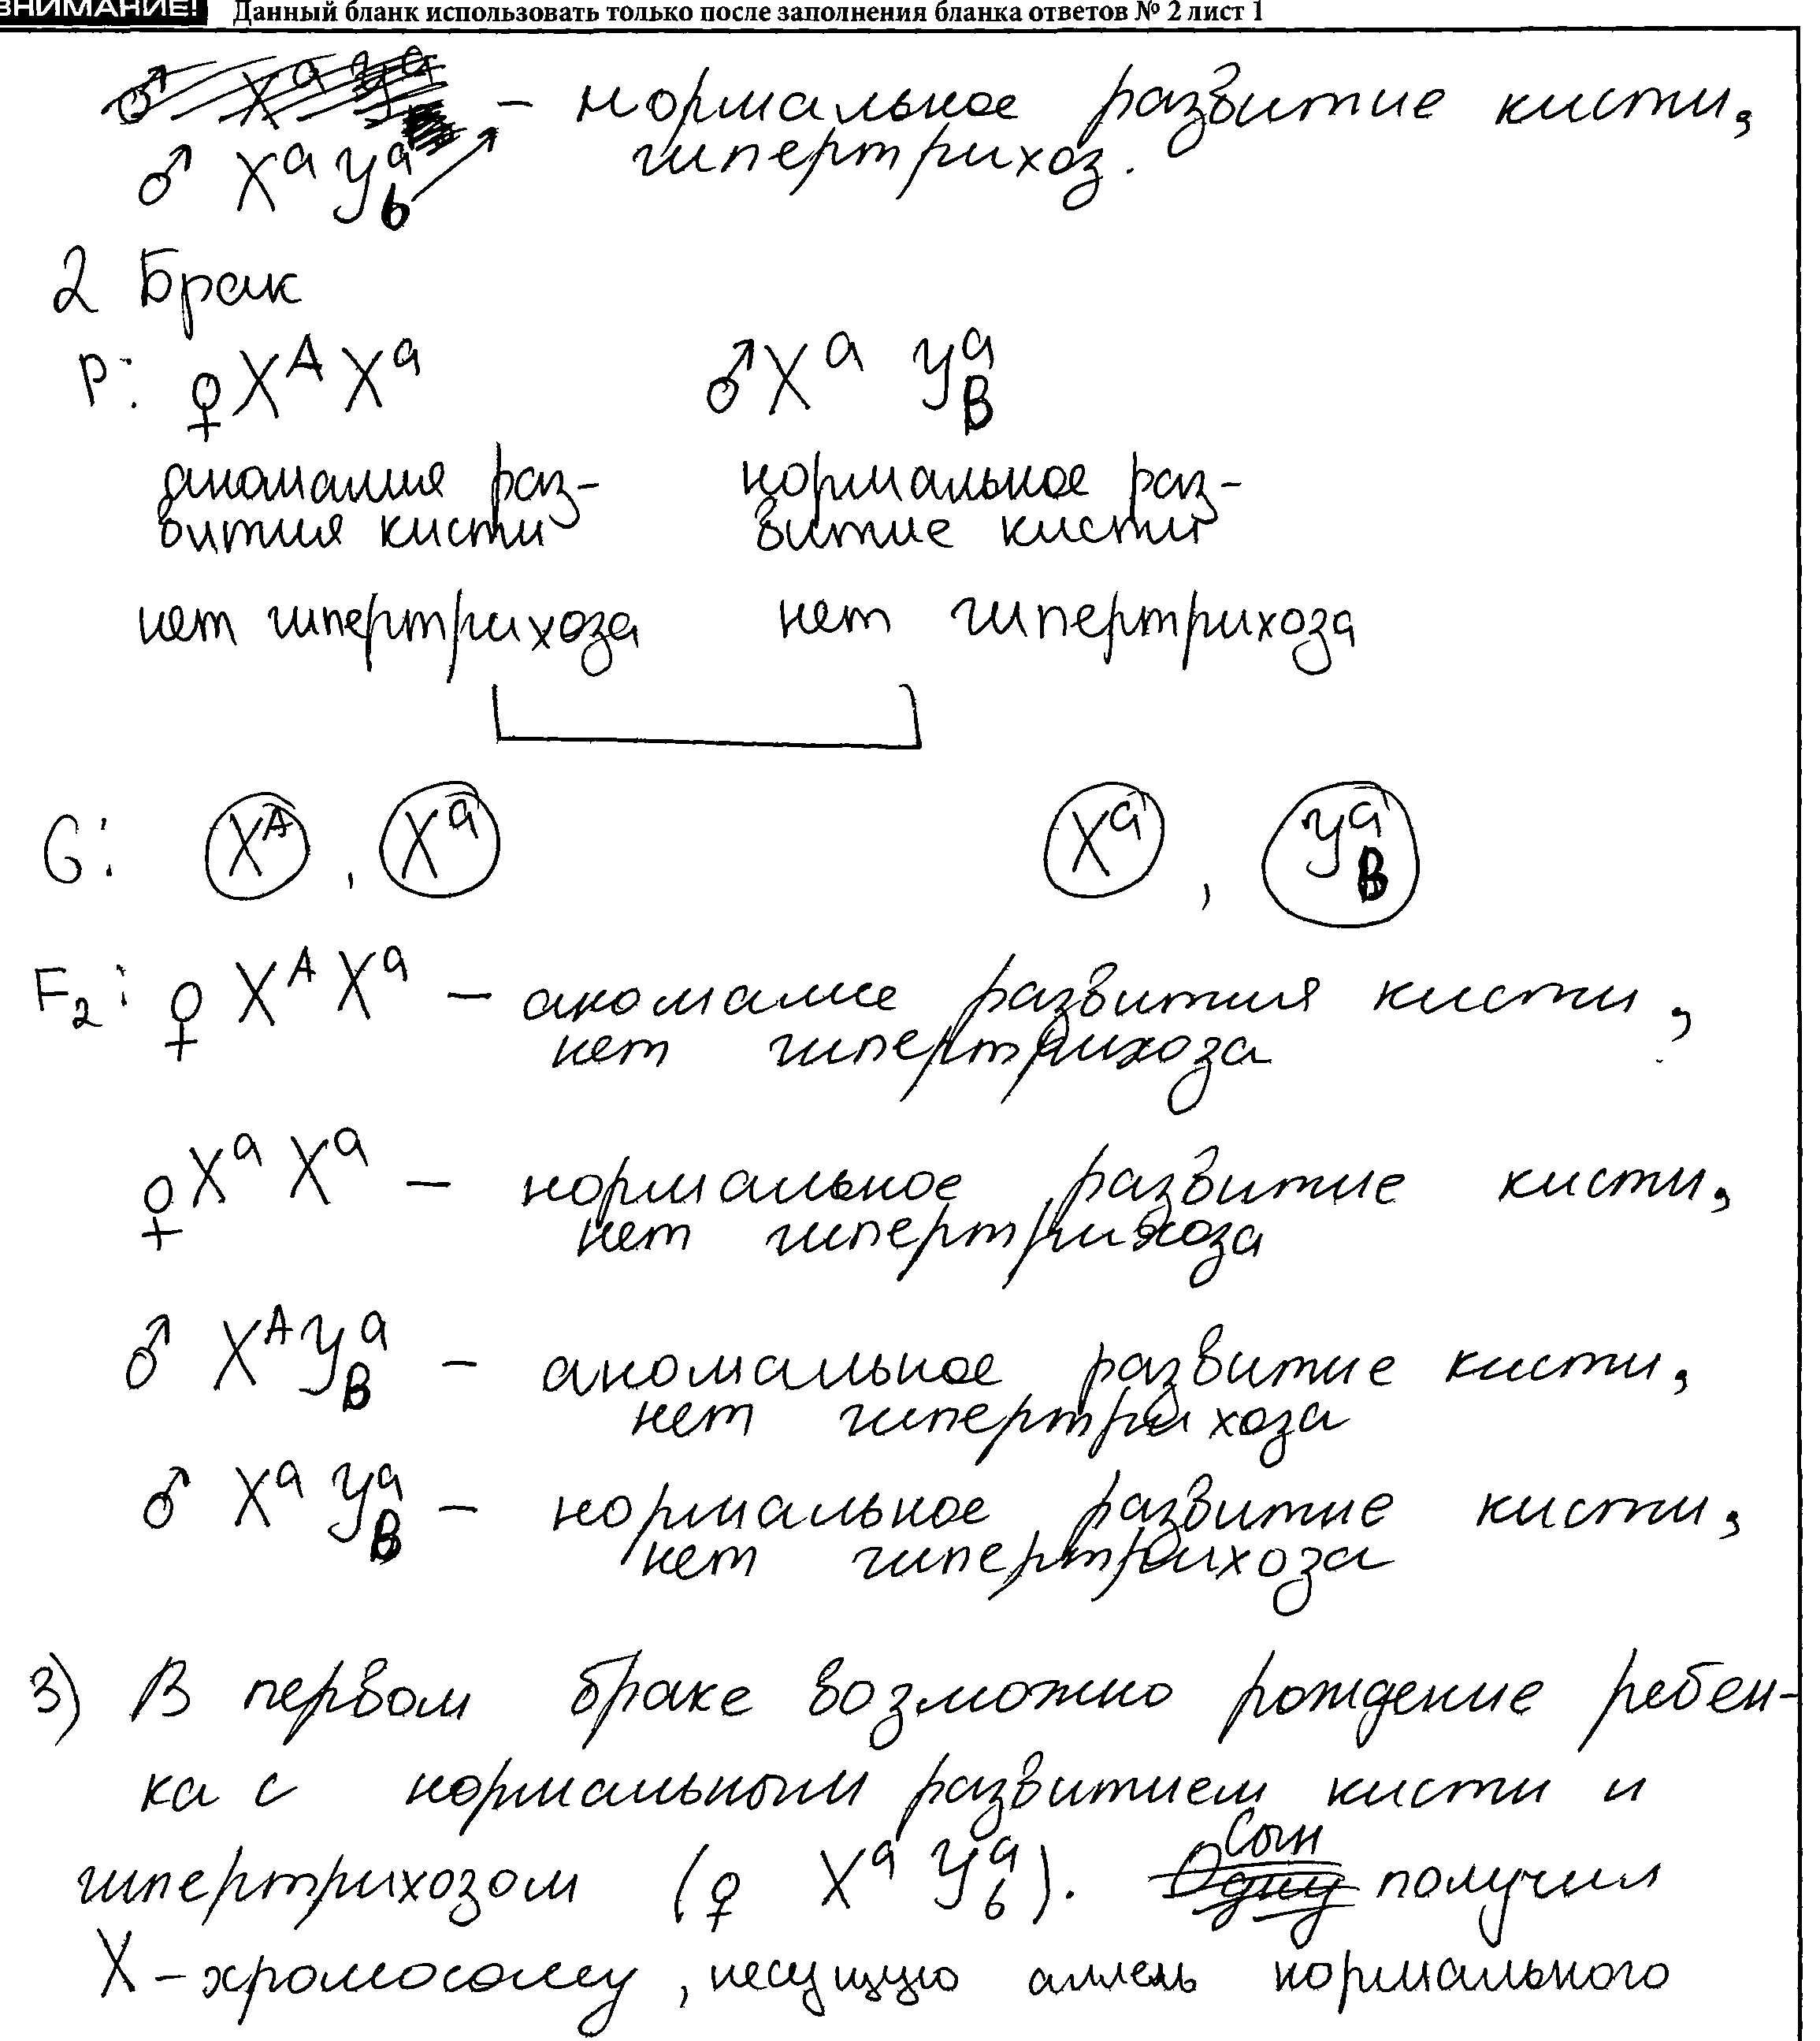 ВНИМАНИЕ! Данный бланк использовать только после заполнения бланка ответов № 2 лист 1
♂ XᵃYᵃb – нормальное развитие кисти,
гипертрихоз.
2 Брак
P: ♀ Xᴬ Xᵃ ♂ Xᵃ YᵃB
аномалия раз- нормальное раз-
вития кисти витие кисти
нет гипертрихоза нет гипертрихоза
G: Xᴬ , Xᵃ Xᵃ , YᵃB
F₂: ♀ Xᴬ Xᵃ – аномалие развития кисти,
нет гипертрихоза
♀ Xᵃ Xᵃ – нормальное развитие кисти,
нет гипертрихоза
♂ XᴬYᵃB – аномальное развитие кисти,
нет гипертрихоза
♂ Xᵃ YᵃB – нормальное развитие кисти,
нет гипертрихоза
3) В первом браке возможно рождение ребен-
ка с нормальным развитием кисти и
гипертрихозом (♀ Xᵃ Yᵃb). Сын получил
X – хромосому, несущую аллель нормального